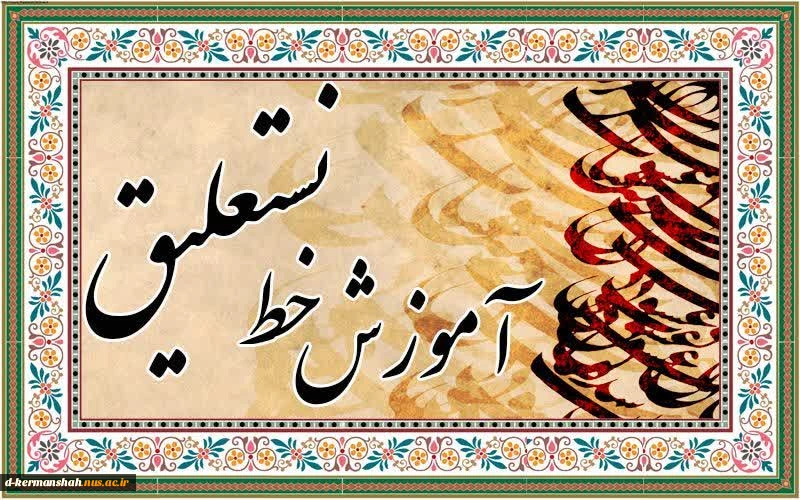 آموزش خط
نستعلیق
d-kermanshah.nus.ac.ir